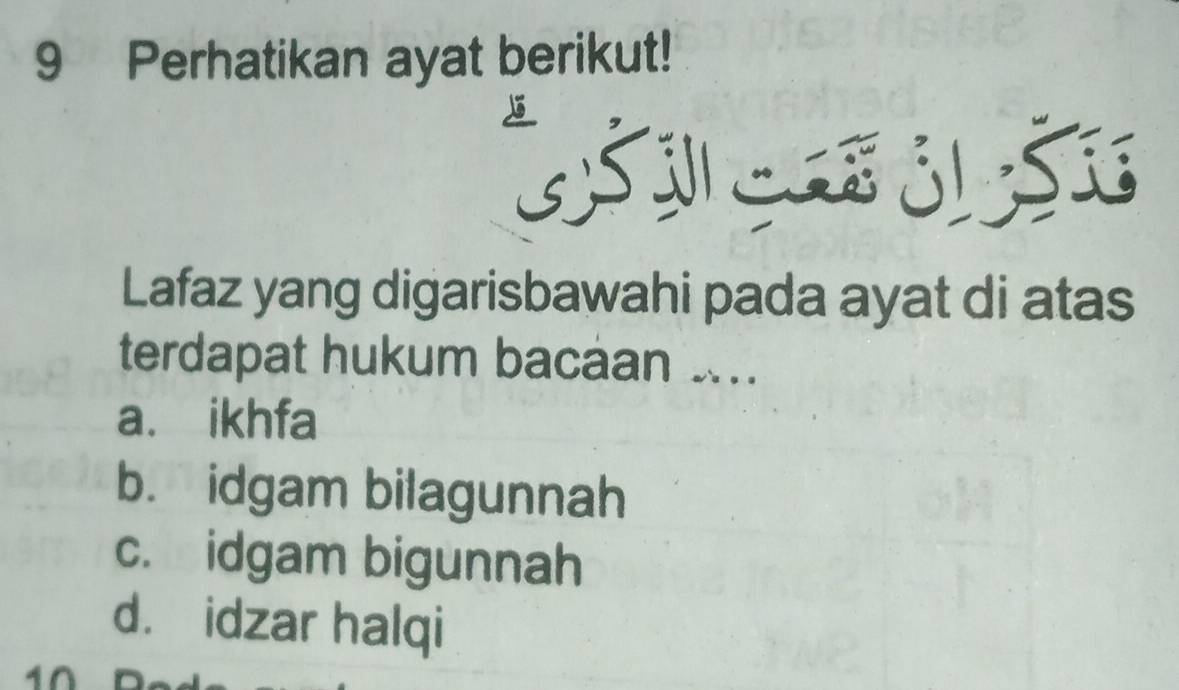 9 Perhatikan ayat berikut!
فَذَكِّرْ اِنْ نَّفَعَتِ الذِّكْرٰىۗ
Lafaz yang digarisbawahi pada ayat di atas
terdapat hukum bacaan ....
a. ikhfa
b. idgam bilagunnah
c. idgam bigunnah
d. idzar halqi
10